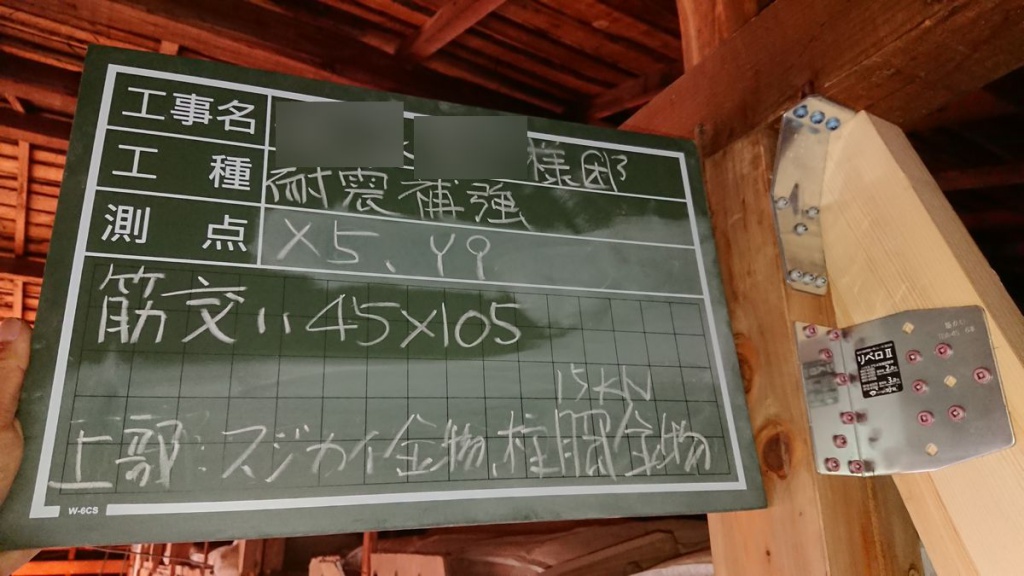 工事名 様邸
工種 耐震補強
測点 X5、Y9
筋交い 45×105
15KN
上部:スジカイ金物、柱脚金物
W-6CS
リベロⅡ